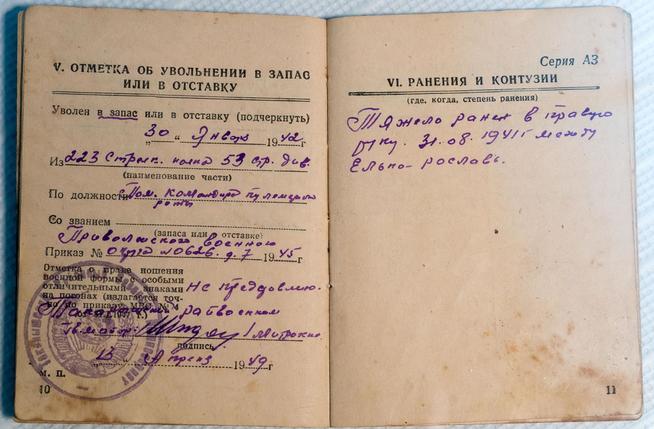 V. ОТМЕТКА ОБ УВОЛЬНЕНИИ В ЗАПАС
ИЛИ В ОТСТАВКУ
Уволен в запас или в отставку (подчеркнуть)
„30“ Января 1942 г.
Из 223 Стрел. полка 53 стр. див.
(наименование части)
По должности Пом. командира
роты
Со званием
(запаса или отставке)
Приволжского военного
Приказ № округа №0626. 1945 г.
Отметка о праве ношения
военной формы с особыми
отличительными знаками
на погонах (излагается точно
по приказу
Не представлено.
райвоенком
майор
подпись
„13“ Апреля 1949 г.
м. п.
10
Серия АЗ
VI. РАНЕНИЯ И КОНТУЗИИ
(где, когда, степень ранения)
Тяжело ранен в правую
руку. 31.08.1941 г между
Ельно-
11